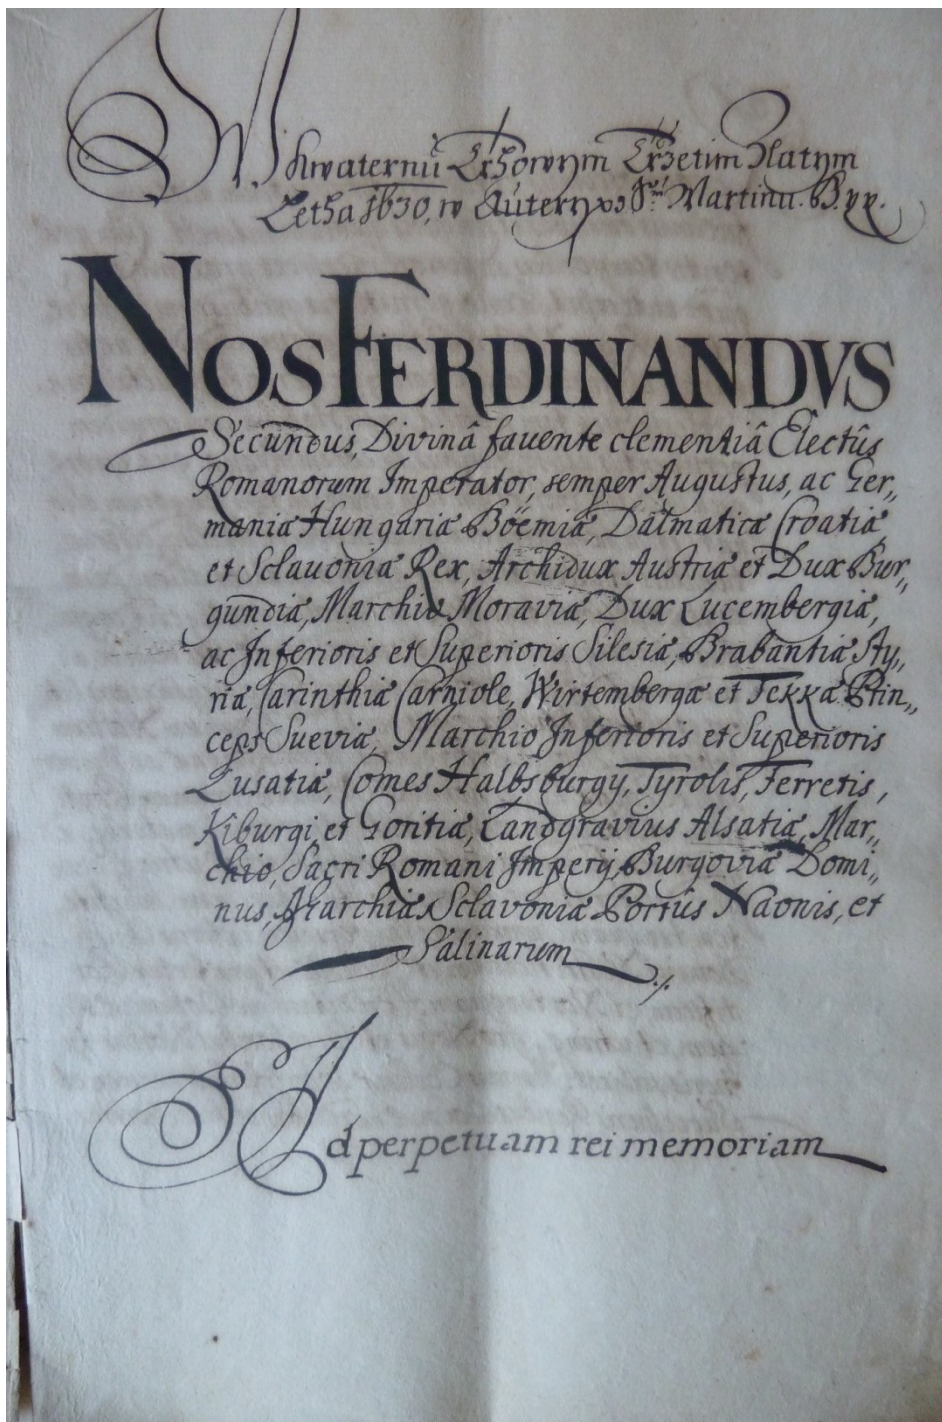 W kwaternu Trhowym Trzetim Zlatym
Letha 1630, w Auterý po S. Martinu. B. yy.
NOS FERDINANDVS
Secundus, Divinâ favente clementiâ Electûs
Romanorum Imperator, semper Augustus, ac Ger„
maniæ Hungariæ Böemiæ, Dalmaticæ Croatiæ
et Sclavoniæ Rex, Archidux Austriæ et Dux Bur„
gundiæ, Marchio Moraviæ, Dux Lucembergiæ,
ac Inferioris et Superioris Silesiæ, Brabantiæ Sty„
riæ, Carinthiæ Carniole, Wirtembergæ et Tekkæ Prin„
ceps Sueviæ, Marchio Inferioris et Superioris
Lusatiæ, Comes Halbsburgy, Tyrolis, Ferretis,
Kiburgi, et Goritiæ, Landgravius Alsatiæ, Mar„
chio, Sacri Romani Imperij, Burgoviæ Domi„
nus, Marchiæ Sclavoniæ Portûs Naonis, et
Salinarum
Ad perpetuam rei memoriam